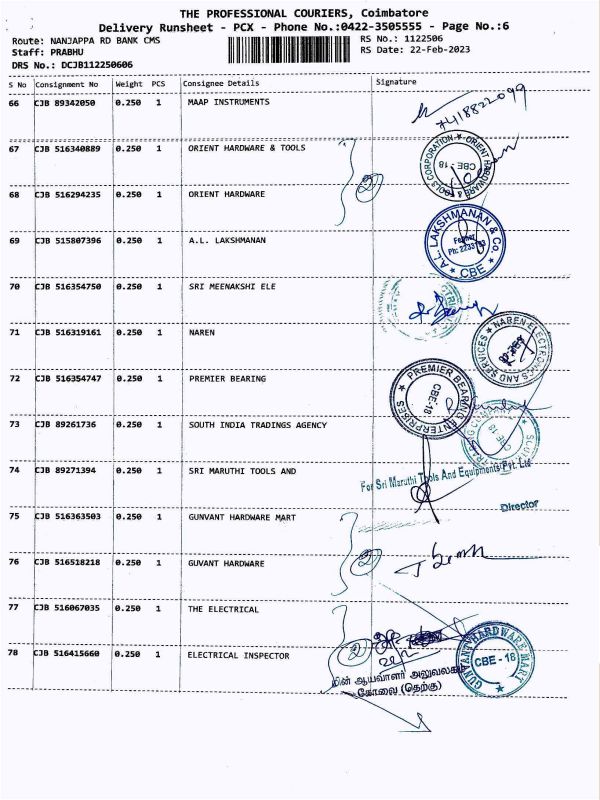 THE PROFESSIONAL COURIERS, Coimbatore
Delivery Runsheet - PCX - Phone No.:0422-3505555 - Page No.:6
Route: NANJAPPA RD BANK CMS
RS No.: 1122506
Staff: PRABHU
RS Date: 22-Feb-2023
DRS No.: DCJB112250606
S No Consignment No Weight PCS Consignee Details Signature
66 CJB 89342050 0.250 1 MAAP INSTRUMENTS
7418822099
67 CJB 516340889 0.250 1 ORIENT HARDWARE & TOOLS
ORIENT HARDWARE & TOOLS CORPORATION
CBE-18
2
68 CJB 516294235 0.250 1 ORIENT HARDWARE
69 CJB 515807396 0.250 1 A.L. LAKSHMANAN
A.L. LAKSHMANAN & Co.
Ph: 2233793
CBE
70 CJB 516354750 0.250 1 SRI MEENAKSHI ELE
71 CJB 516319161 0.250 1 NAREN
NAREN ELECTRONICS AND SERVICES
72 CJB 516354747 0.250 1 PREMIER BEARING
PREMIER BEARING ENTERPRISES
CBE-18
73 CJB 89261736 0.250 1 SOUTH INDIA TRADINGS AGENCY
CBE-18
74 CJB 89271394 0.250 1 SRI MARUTHI TOOLS AND
For Sri Maruthi Tools And Equipments Pvt. Ltd
Director
75 CJB 516363503 0.250 1 GUNVANT HARDWARE MART
76 CJB 516518218 0.250 1 GUVANT HARDWARE
2
77 CJB 516067035 0.250 1 THE ELECTRICAL
78 CJB 516415660 0.250 1 ELECTRICAL INSPECTOR
2
GUNVANT HARDWARE MART
CBE-18
மின் ஆய்வாளர் அலுவலகம்
கோவை (தெற்கு)